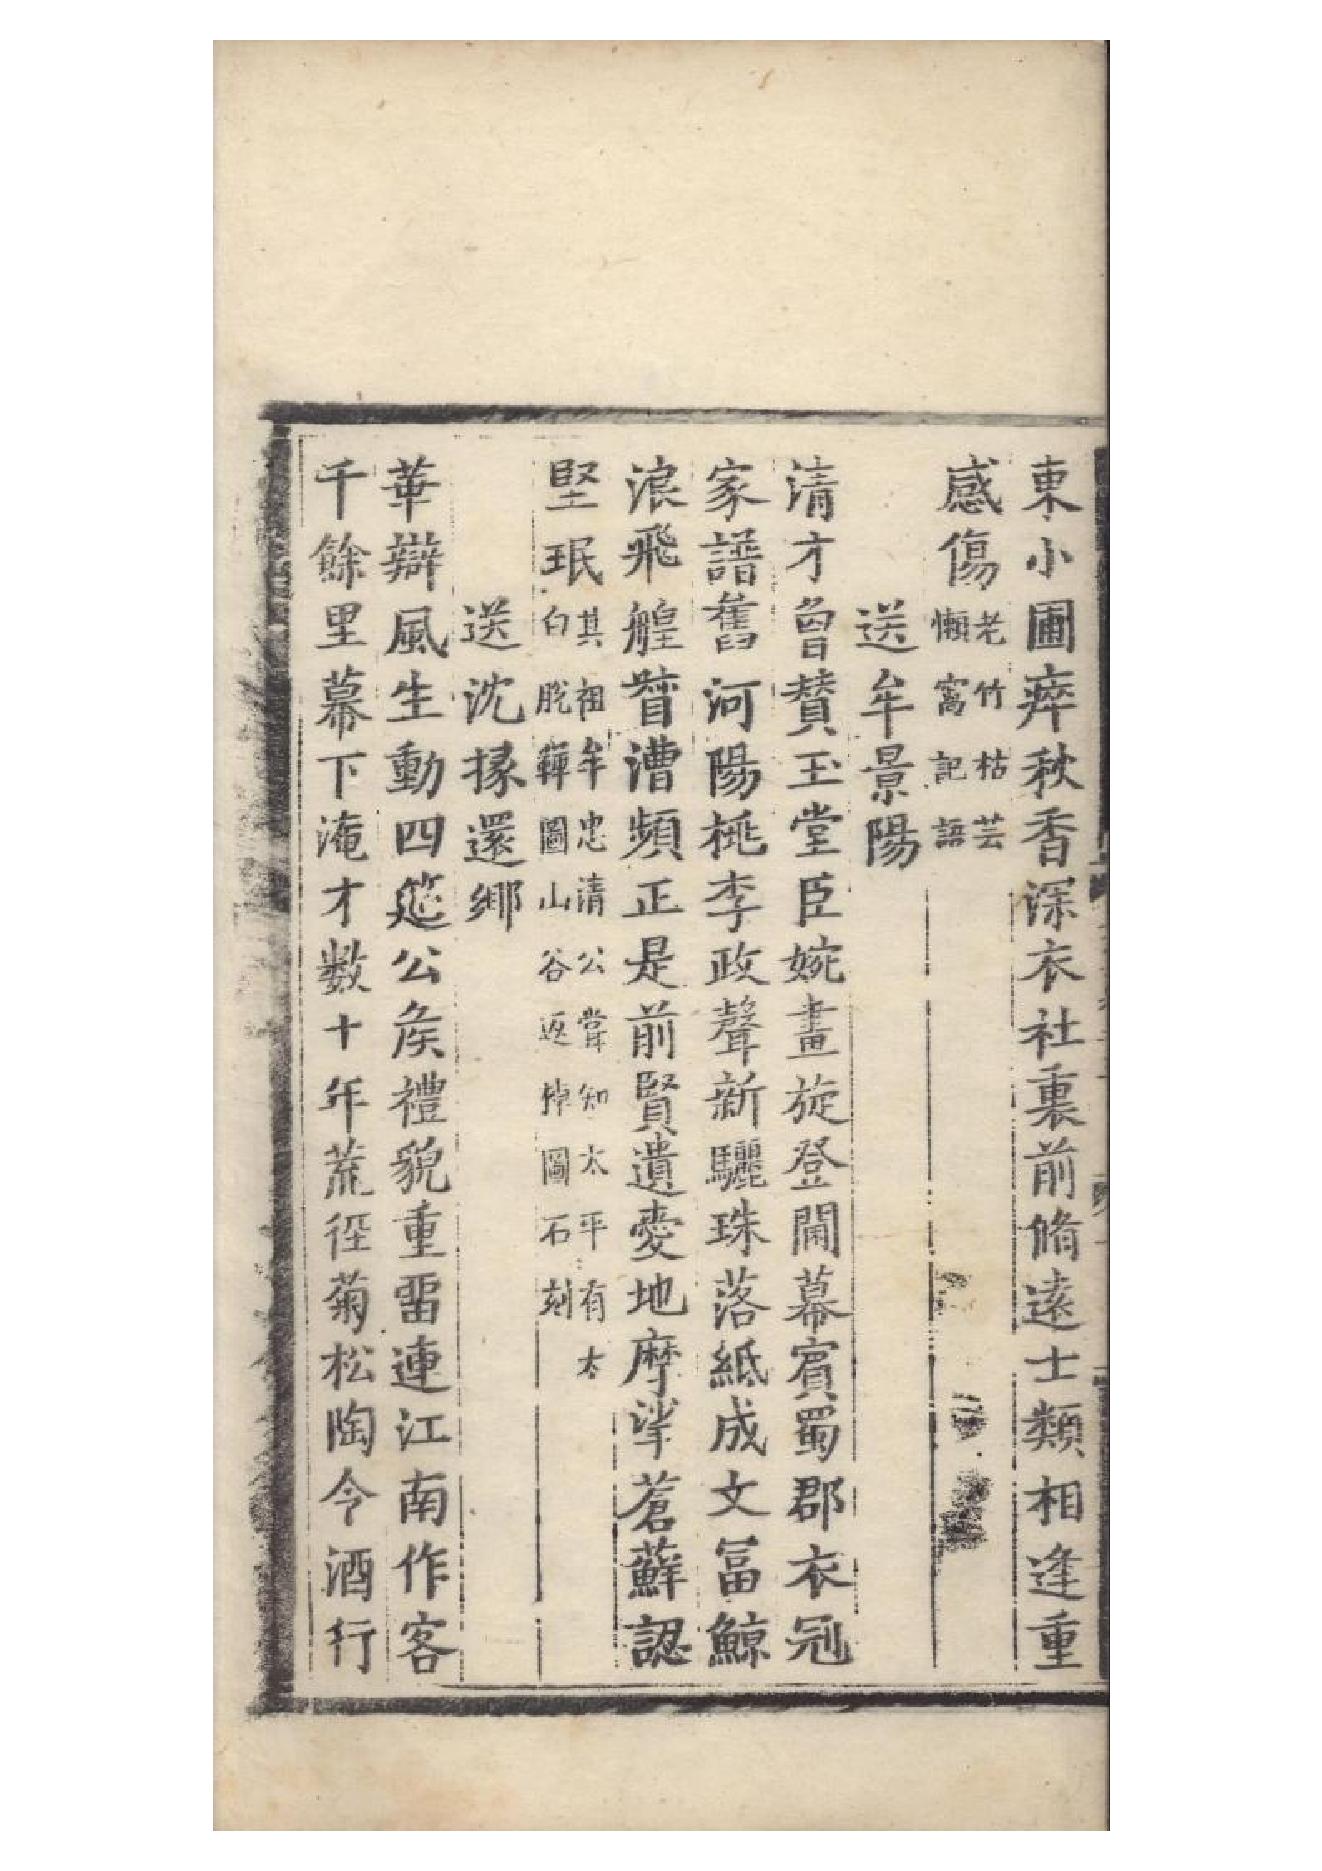 東小圃瘁秋香深衣社裏前脩遠士類相逢重
感傷老竹枯芸懶窩記語
送牟景陽
清才曾賛玉堂臣婉畫旋登閫幕賓蜀郡衣冠
家譜舊河陽桃李政聲新驪珠落紙成文冨鯨
浪飛艎督漕頻正是前賢遺愛地摩挲蒼蘚認
堅珉其祖牟忠清公嘗知太平有太白脫鞾圖山谷返棹圖石刻
送沈掾還鄉
華辯風生動四筵公矦禮貌重畱連江南作客
千餘里幕下淹才數十年荒徑菊松陶令酒行